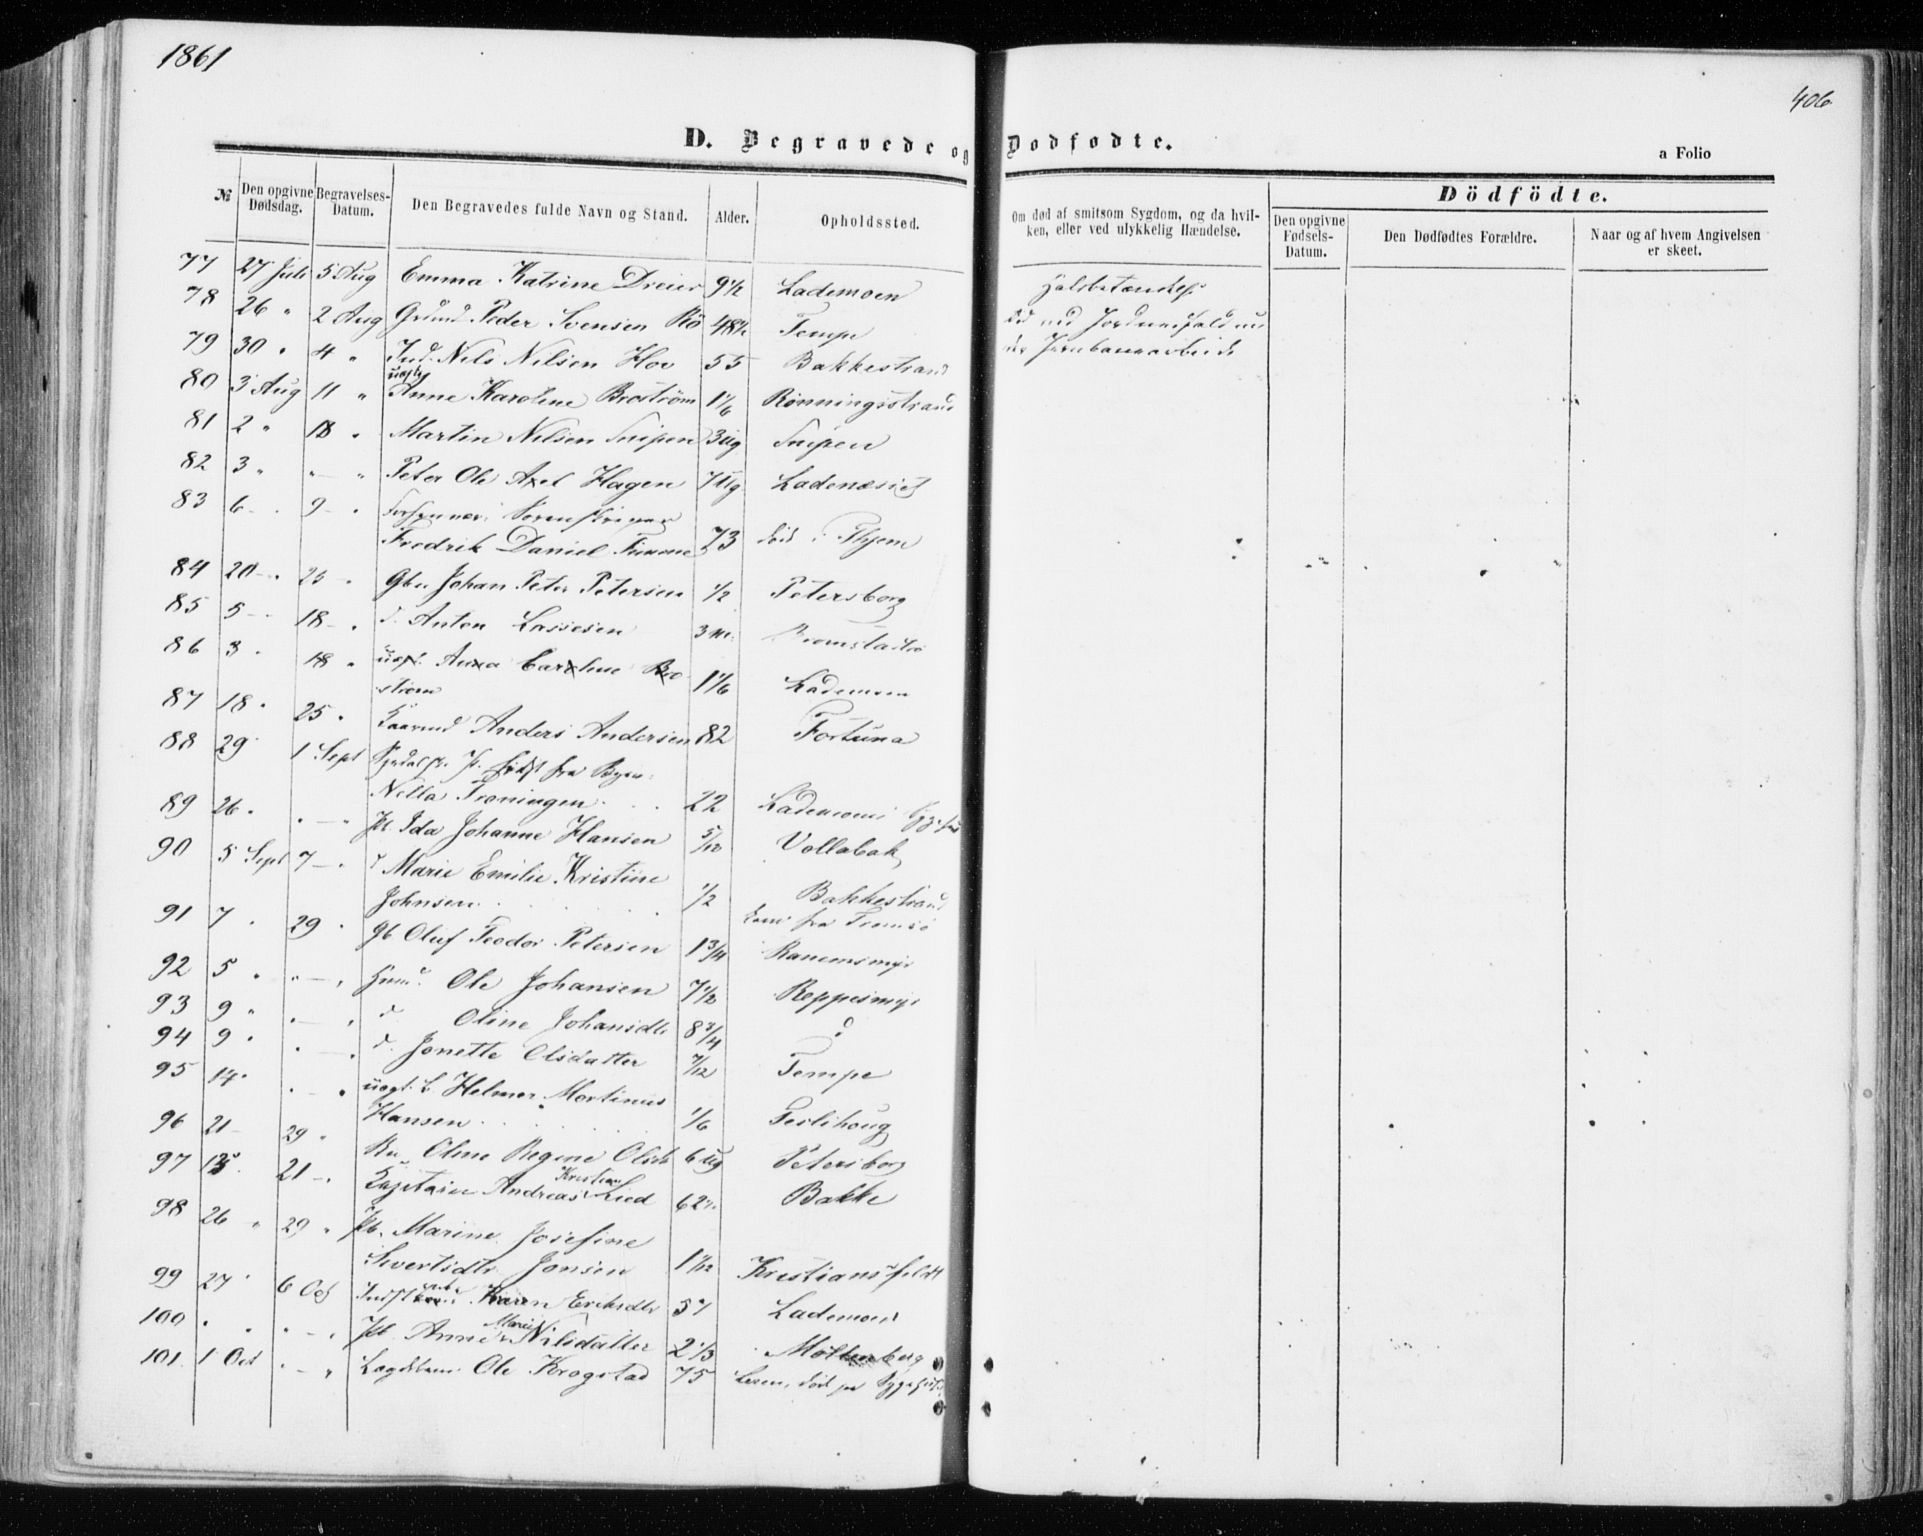 1861
406
D. Begravede og Dødfødte.
a Folio
№ Den opgivne Dødsdag. Begravelses-Datum. Den Begravedes fulde Navn og Stand. Alder. Opholdssted. Om død af smitsom Sygdom, og da hvilken, eller ved ulykkelig Hændelse. Dödfödte. Den opgivne Fødsels-Datum. Den Dødfødtes Forældre. Naar og af hvem Angivelsen er skeet.
77 27 Juli 5 Aug Emma Katrine Dreier 9½ Lademoen Halsbetændelse
78 26 " 2 Aug Grdmd Peder Svensen 48½ Tempe Død ved Jordnedfald un
79 30 " 4 " Ind. Nils Nilsen Hov 55 Bakkestrand der Jernbanearbeide
80 3 Aug 11 " uægte Anne Karoline Broström 1 1/6 Rønningsstrand
81 2 " 18 " Martin Nilsen Snipen 3 Ug Snipen
82 3 " " — " Peter Ole Axel Hagen 7 Ug Ladenæset
83 6 - . 9 - .
Fredrik Daniel 73 død i Thjem
84 20 - . 25 - Gbn Johan Peter Petersen ½ Petersborg
85 5 - . 18 - . d. Anton Lassesen 3 M.
86 3 . 18 " uægt. Anna Caroline Bro
strøm 1 1/6 Lademoen
87 18 . 25 . Gaarmd Anders Andersen 82 Fortuna
88 29 . 1 Sept fra Byen
Nella Troningen . . . 22 Lademoens
89 26 . . — " Pb Ida Johanne Hansen 5/12 Vollabak
90 5 Sept 7 — . d Marie Emilie Kristine
Johnsen . . . ½ Bakkestrand
91 7 . 29 . Gb Oluf Teodor Petersen 1¾ fra Tromsø
Ranemsmyr
92 5 " " — . Husmd. Ole Johansen 7½ Reppesmyr
93 9 " . — " d. Oline Johansdtr 8¾ d
94 9 . . — . d. Jonette Olsdatter 7/12 Tempe
95 14 . . — . uægt. b. Helmer Martinus
Hansen . . . 1/6 Teslihoug
96 21 - 29 " Oline Regine Olsdt 6 Ug Petersborg
97 15 . 21 - . Kapitain Andreas Kristian Lied 62 Bakke
98 26 " 29 " Pb. Marine Josefine
Sivertsdtr Jonsen 1 1/12 Kristiansfeldt
99 27 . 6 Oct Karen Eriksdtr 57 Lademoen
100 . . " — . Pb. Anne Marie Nilsdatter 2 1/3 Møllenberg
101 1 Oct . — " Lægdslem Ole Krogstad 75 død paa Sygehuset